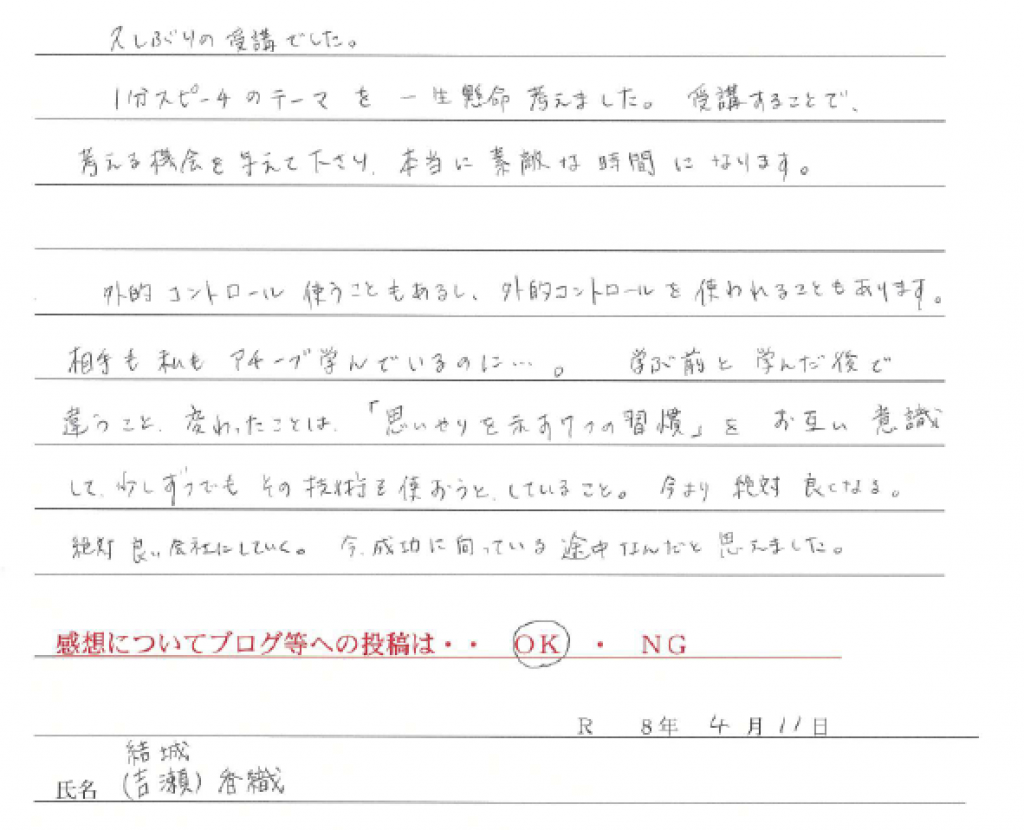 久しぶりの受講でした。
1分スピーチのテーマを一生懸命考えました。受講することで、
考える機会を与えて下さり、本当に素敵な時間になります。
外的コントロール使うこともあるし、外的コントロールを使われることもあります。
相手も私もアチーブ学んでいるのに…。 学ぶ前と学んだ後で
違うこと、変わったことは、「思いやりを示す7つの習慣」をお互い意識
して、少しずつでもその技術を使おうと、していること。今より絶対良くなる。
絶対良い会社にしていく。今、成功に向っている途中なんだと思えました。
感想についてブログ等への投稿は・・ OK ・ NG
R 8年 4月11日
結城
氏名 (吉瀬) 香織